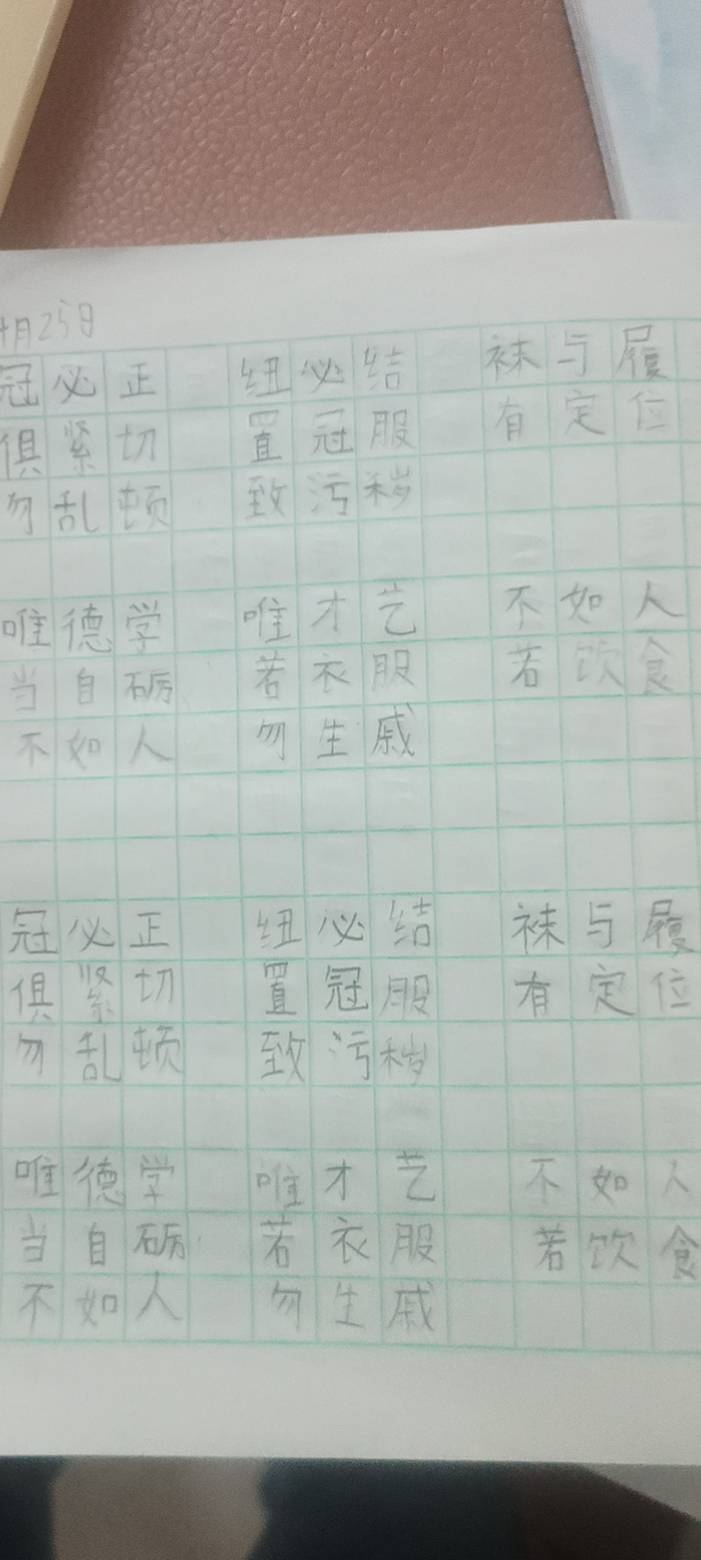 月25日
冠必正 纽必结 袜与履
俱紧切 置冠服 有定位
勿乱顿 致污秽
唯德学 唯才艺 不如人
当自砺 若衣服 若饮食
不如人 勿生戚
冠必正 纽必结 袜与履
俱紧切 置冠服 有定位
勿乱顿 致污秽
唯德学 唯才艺 不如人
当自砺 若衣服 若饮食
不如人 勿生戚